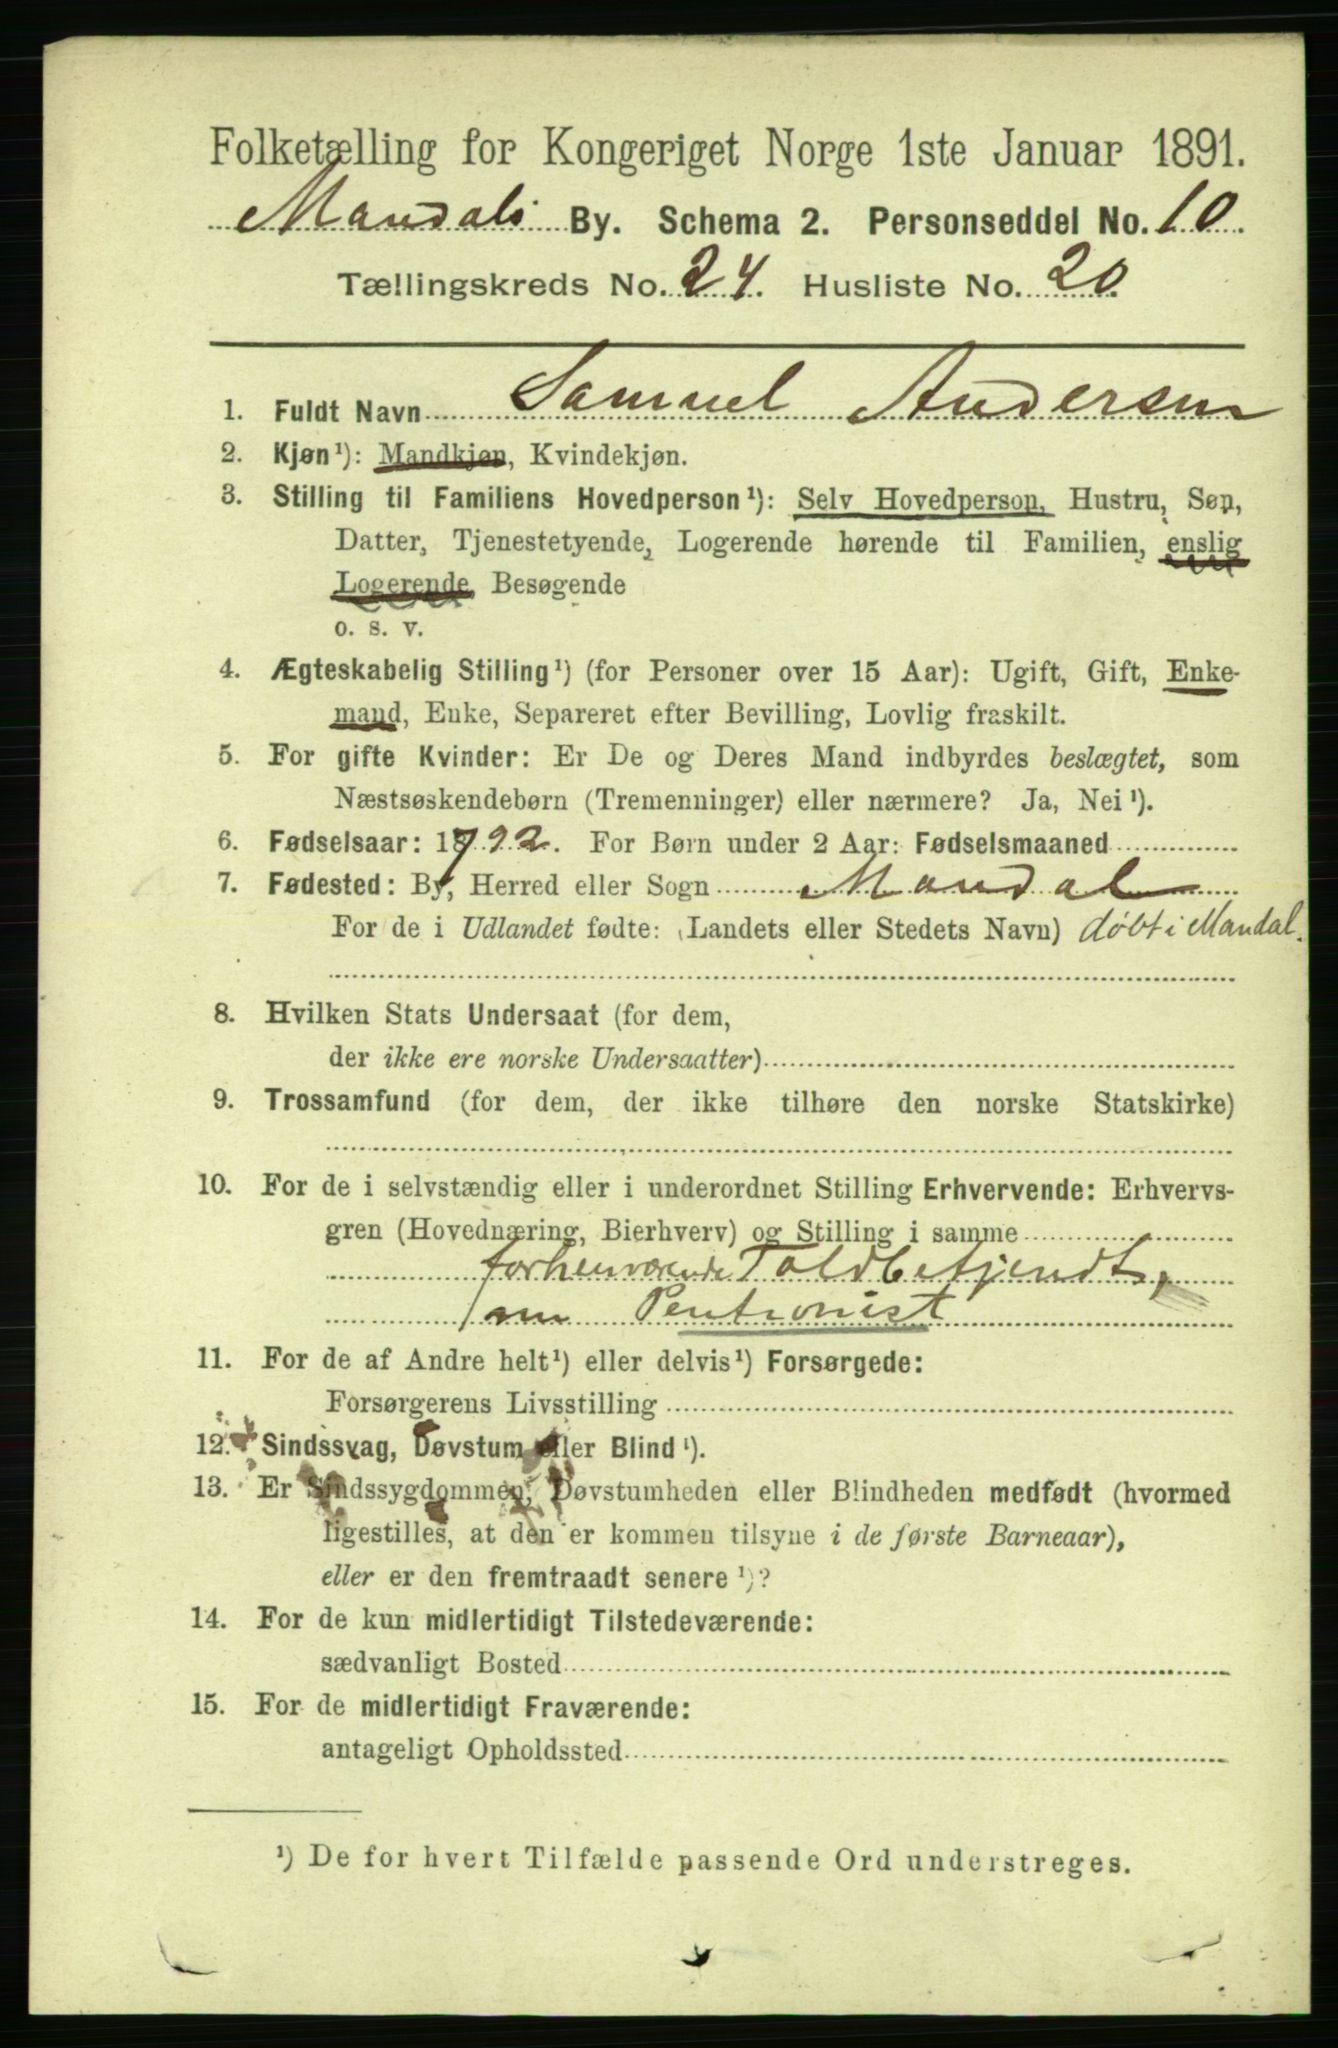 Folketælling for Kongeriget Norge 1ste Januar 1891.
Mandals By. Schema 2. Personseddel No. 10
Tællingskreds No. 24. Husliste No. 20
1. Fuldt Navn Samuel Andersen
2. Kjøn¹): Mandkjøn, Kvindekjøn.
3. Stilling til Familiens Hovedperson¹): Selv Hovedperson, Hustru, Søn,
Datter, Tjenestetyende, Logerende hørende til Familien, enslig
Logerende, Besøgende
o. s. v.
4. Ægteskabelig Stilling¹) (for Personer over 15 Aar): Ugift, Gift, Enke-
mand, Enke, Separeret efter Bevilling, Lovlig fraskilt.
5. For gifte Kvinder: Er De og Deres Mand indbyrdes beslægtet, som
Næstsøskendebørn (Tremenninger) eller nærmere? Ja, Nei¹).
6. Fødselsaar: 1792. For Børn under 2 Aar: Fødselsmaaned
7. Fødested: By, Herred eller Sogn Mandal
For de i Udlandet fødte: (Landets eller Stedets Navn) døbt i Mandal.
8. Hvilken Stats Undersaat (for dem,
der ikke ere norske Undersaatter)
9. Trossamfund (for dem, der ikke tilhøre den norske Statskirke)
10. For de i selvstændig eller i underordnet Stilling Erhvervende: Erhvervs-
gren (Hovednæring, Bierhverv) og Stilling i samme
forhenværende Toldbetjendt,
nu Pentionist
11. For de af Andre helt¹) eller delvis¹) Forsørgede:
Forsørgerens Livsstilling
12. Sindssvag, Døvstum eller Blind¹).
13. Er Sindssygdommen, Døvstumheden eller Blindheden medfødt (hvormed
ligestilles, at den er kommen tilsyne i de første Barneaar),
eller er den fremtraadt senere¹)?
14. For de kun midlertidigt Tilstedeværende:
sædvanligt Bosted
15. For de midlertidigt Fraværende:
antageligt Opholdssted
¹) De for hvert Tilfælde passende Ord understreges.